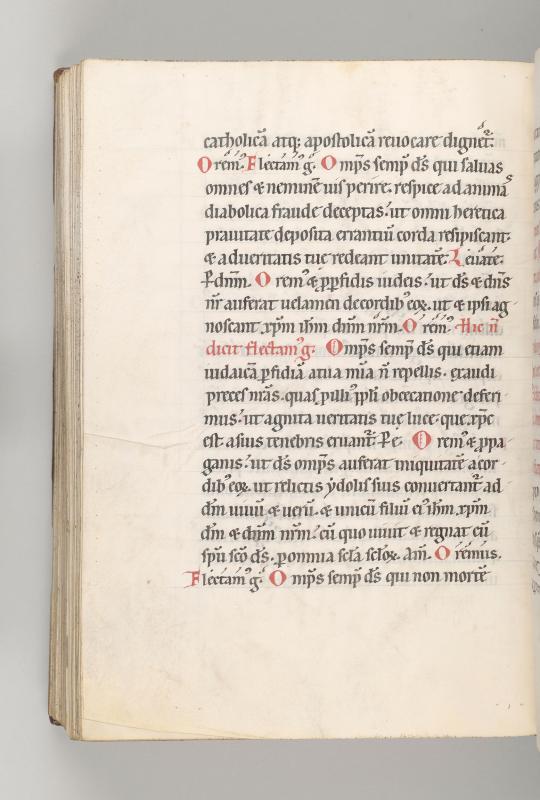 catholicā atq; apostolicā reuocare dignet̄.
Orem̄. Flectam᷒ g̅. Omp̄s semp̄ d̄s qui saluas
omnes & neminē uis perire. respice ad animas
diabolica fraude deceptas. ut omni heretica
prauitate deposita errantiū corda resipiscant.
& ad ueritatis tue redeant unitatē. Leuate.
P̄ dn̄m. Orem᷒ & ꝓ ꝑfidis iudeis. ut d̄s & dn̄s
nr̄ auferat uelamen de cordib᷒ eoꝝ. ut & ipsi ag
noscant xp̄m ih̄m dn̄m nr̄m. Orem᷒. Hic n̄
dicit flectam᷒ g̅. Omp̄s semp̄ d̄s qui etiam
iudaicā ꝑfidiā a tua mīa n̄ repellis. exaudi
preces nr̄as. quas ꝓ illi᷒ ppl̄i obcecatione deferi
mus. ut agnita ueritatis tuę luce. que xp̄c
est. a suis tenebris eruant̄. P̄ e. Orem᷒ & ꝓ pa
ganis. ut d̄s omp̄s auferat iniquitatē a cor
dib᷒ eoꝝ. ut relictis ydolis suis conuertant̄ ad
dm̄ uiuū & uerū. & unicū filiū ei᷒ ih̄m xp̄m
dm̄ & dn̄m nr̄m. cū quo uiuit & regnat cū
sp̄u sc̄o d̄s. ꝑ omnia sc̄la sc̄loꝝ. am̄. Oremus.
Flectam᷒ g̅. Omp̄s semp̄ d̄s qui non mortē